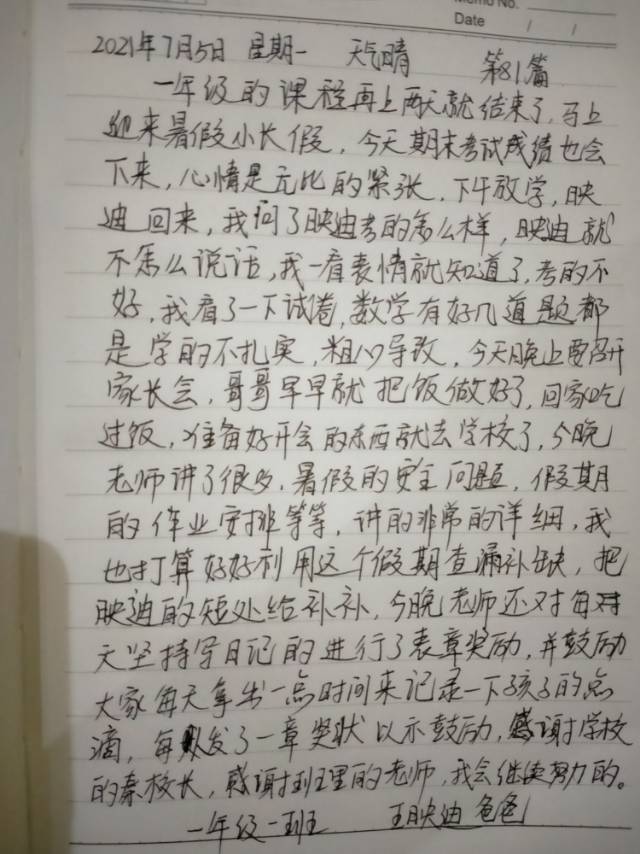 Memo No.
Date / /
2021年7月5日 星期一 天气晴 第81篇
一年级的课程再上两天就结束了,马上
迎来暑假小长假,今天期末考试成绩也会
下来,心情是无比的紧张,下午放学,映
迪回来,我问了映迪考的怎么样,映迪就
不怎么说话,我一看表情就知道了,考的不
好,我看了一下试卷,数学有好几道题都
是学的不扎实,粗心导致,今天晚上要召开
家长会,哥哥早早就把饭做好了,回家吃
过饭,准备好开会的东西就去学校了,今晚
老师讲了很多,暑假的安全问题,假期
的作业安排等等,讲的非常的详细,我
也打算好好利用这个假期查漏补缺,把
映迪的短处给补补,今晚老师还对每对
天坚持写日记的进行了表章奖励,并鼓励
大家每天拿出一点时间来记录一下孩子的点
滴,每人发了一章奖状以示鼓励,感谢学校
的秦校长,感谢班里的老师,我会继续努力的。
一年级一班 王映迪爸爸